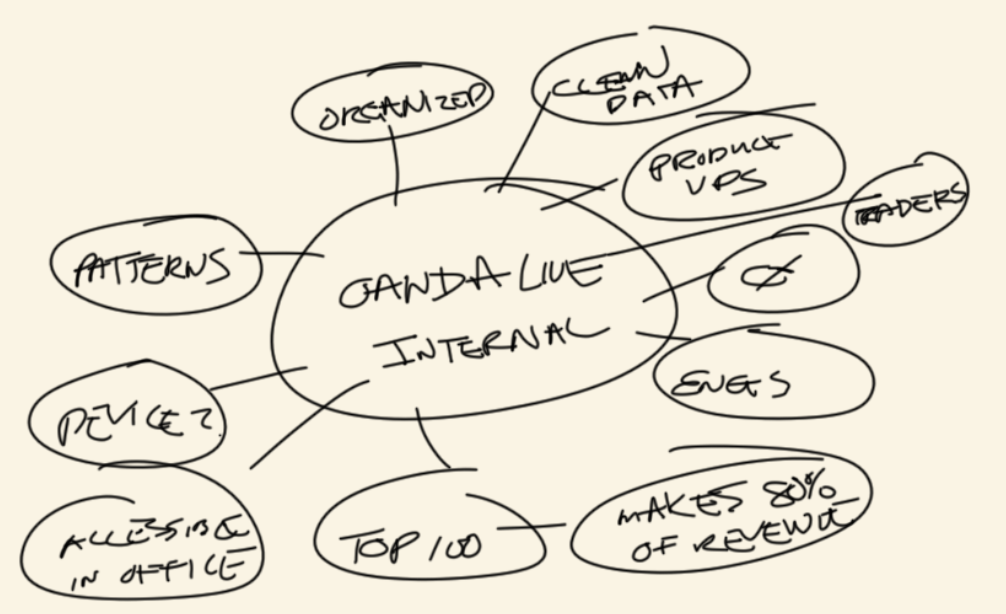 ORGANIZED
CLEAN
DATA
PRODUCT
VPS
TRADERS
PATTERNS
OANDA LIVE
INTERNAL
CX
ENGS
DEVICE?
ACCESSIBLE
IN OFFICE
TOP 100
MAKES 80%
OF REVENUE